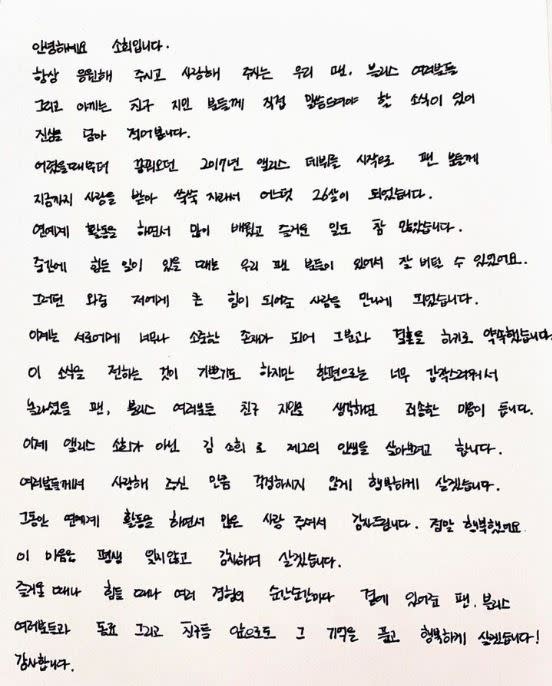 안녕하세요 소희입니다.
항상 응원해 주시고 사랑해 주시는 우리 팬, 블리스 여러분들
그리고 아끼는 친구 지인 분들께 직접 말씀드려야 할 소식이 있어
진심을 담아 적어봅니다.
어렸을때부터 꿈꿔오던 2017년 앨리스 데뷔를 시작으로 팬 분들께
지금까지 사랑을 받아 쑥쑥 자라서 어느덧 26살이 되었습니다.
연예계 활동을 하면서 많이 배웠고 즐거운 일도 참 많았습니다.
중간에 힘든 일이 있을 때는 우리 팬 분들이 있어서 잘 버틸 수 있었어요.
그러던 와중 저에게 큰 힘이 되어준 사람을 만나게 되었습니다.
이제는 서로에게 너무나 소중한 존재가 되어 그분과 결혼을 하기로 약속했습니다.
이 소식을 전하는 것이 기쁘기도 하지만 한편으로는 너무 갑작스러워서
놀라셨을 팬, 블리스 여러분들 친구 지인을 생각하면 죄송한 마음이 듭니다.
이제 앨리스 소희가 아닌 김 소희 로 제2의 인생을 살아보려고 합니다.
여러분들께서 사랑해 주신 만큼 걱정하시지 않게 행복하게 살겠습니다.
그동안 연예계 활동을 하면서 많은 사랑 주셔서 감사드립니다. 정말 행복했어요
이 마음은 평생 잊지않고 감사하며 살겠습니다.
즐거울 때나 힘들 때나 여러 경험의 순간순간마다 곁에 있어준 팬, 블리스
여러분들과 동료 그리고 친구들 앞으로도 그 기억을 품고 행복하게 살겠습니다!
감사합니다.